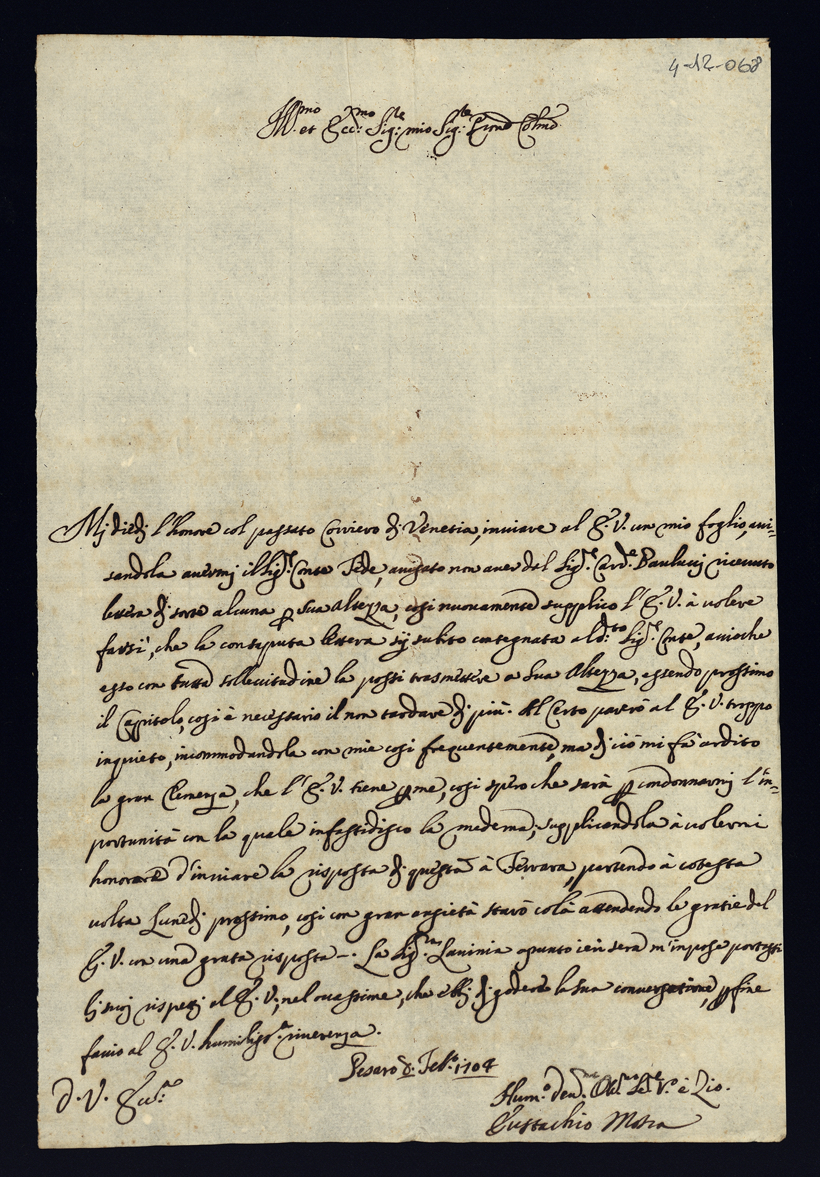 4-12-068
Ill.mo et Ecc.mo Sig.re mio Sig.re P.rone Col.mo
Mi diedi l'honore col passato Corriero di Venetia, inviare al E. V. un mio foglio, avi-
sandola avermi il Sig.r Conte Fede, avisato non aver dal Sig.re Card.e Paulucij ricevuto
lettera di sorte alcuna p Sua Altezza, cosi nuovamente supplico l'E. V. à volere
farsi, che la conseputa lettera sij subito consegnata al d.to Sig.r Conte, acioche
esso con tutta sollecitudine la possi trasmettere a Sua Altezza, essendo prossimo
il Capitolo, cosi è necessario il non tardare di più. Al Certo parerò al E. V. troppo
inquieto, incommodandola con mie cosi frequentemente, ma di ciò mi fà ardito
la gran Clemenza, che l'E. V. tiene p me, cosi spero che sarà p condonnarmi l'in-
portunità con la quale infastidisco la medema, supplicandola à volermi
honorare d'inviare la risposta di questa à Ferrara, partendo à cotesta
volta Lunedi prossimo, cosi con gran ansietà starò colà attendendo le gratie del
E. V. con una grata risposta -. La Sig.ra Lavinia apunto ieri sera m'impose portasti
li suoi rispetti al E. V., nel ovassime, che ebbi di godere la sua conversatione, p fine
facio al E. V. humiliss.a riverenza.
Pesaro 8. Feb.o 1704
D. V. Ecc.a
Hum.o Dev.mo Obl.mo Se.re V.o e Zio.
Eustachio